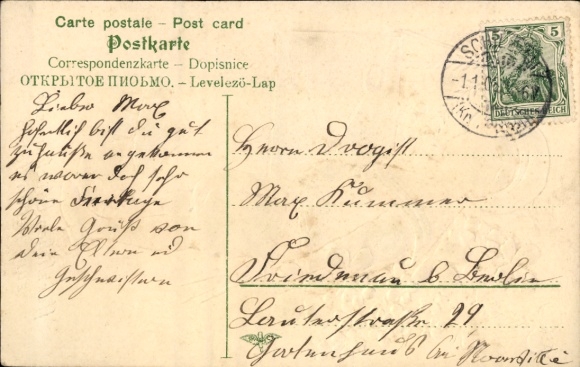 Carte postale – Post card
Postkarte
Correspondenzkarte – Dopisnice
ОТКРЫТОЕ ПИСЬМО. – Levelező-Lap
5 5
DEUTSCHES REICH
Lieber Max
hoffentlich bist du gut
zuhause angekommen
es waren doch sehr
schöne
Viele Grüße von
dein Eltern und
Geschwistern
Herrn Drogist
Max Kummer
Friedenau b Berlin
Lauterstraße 29
Gartenhaus bei